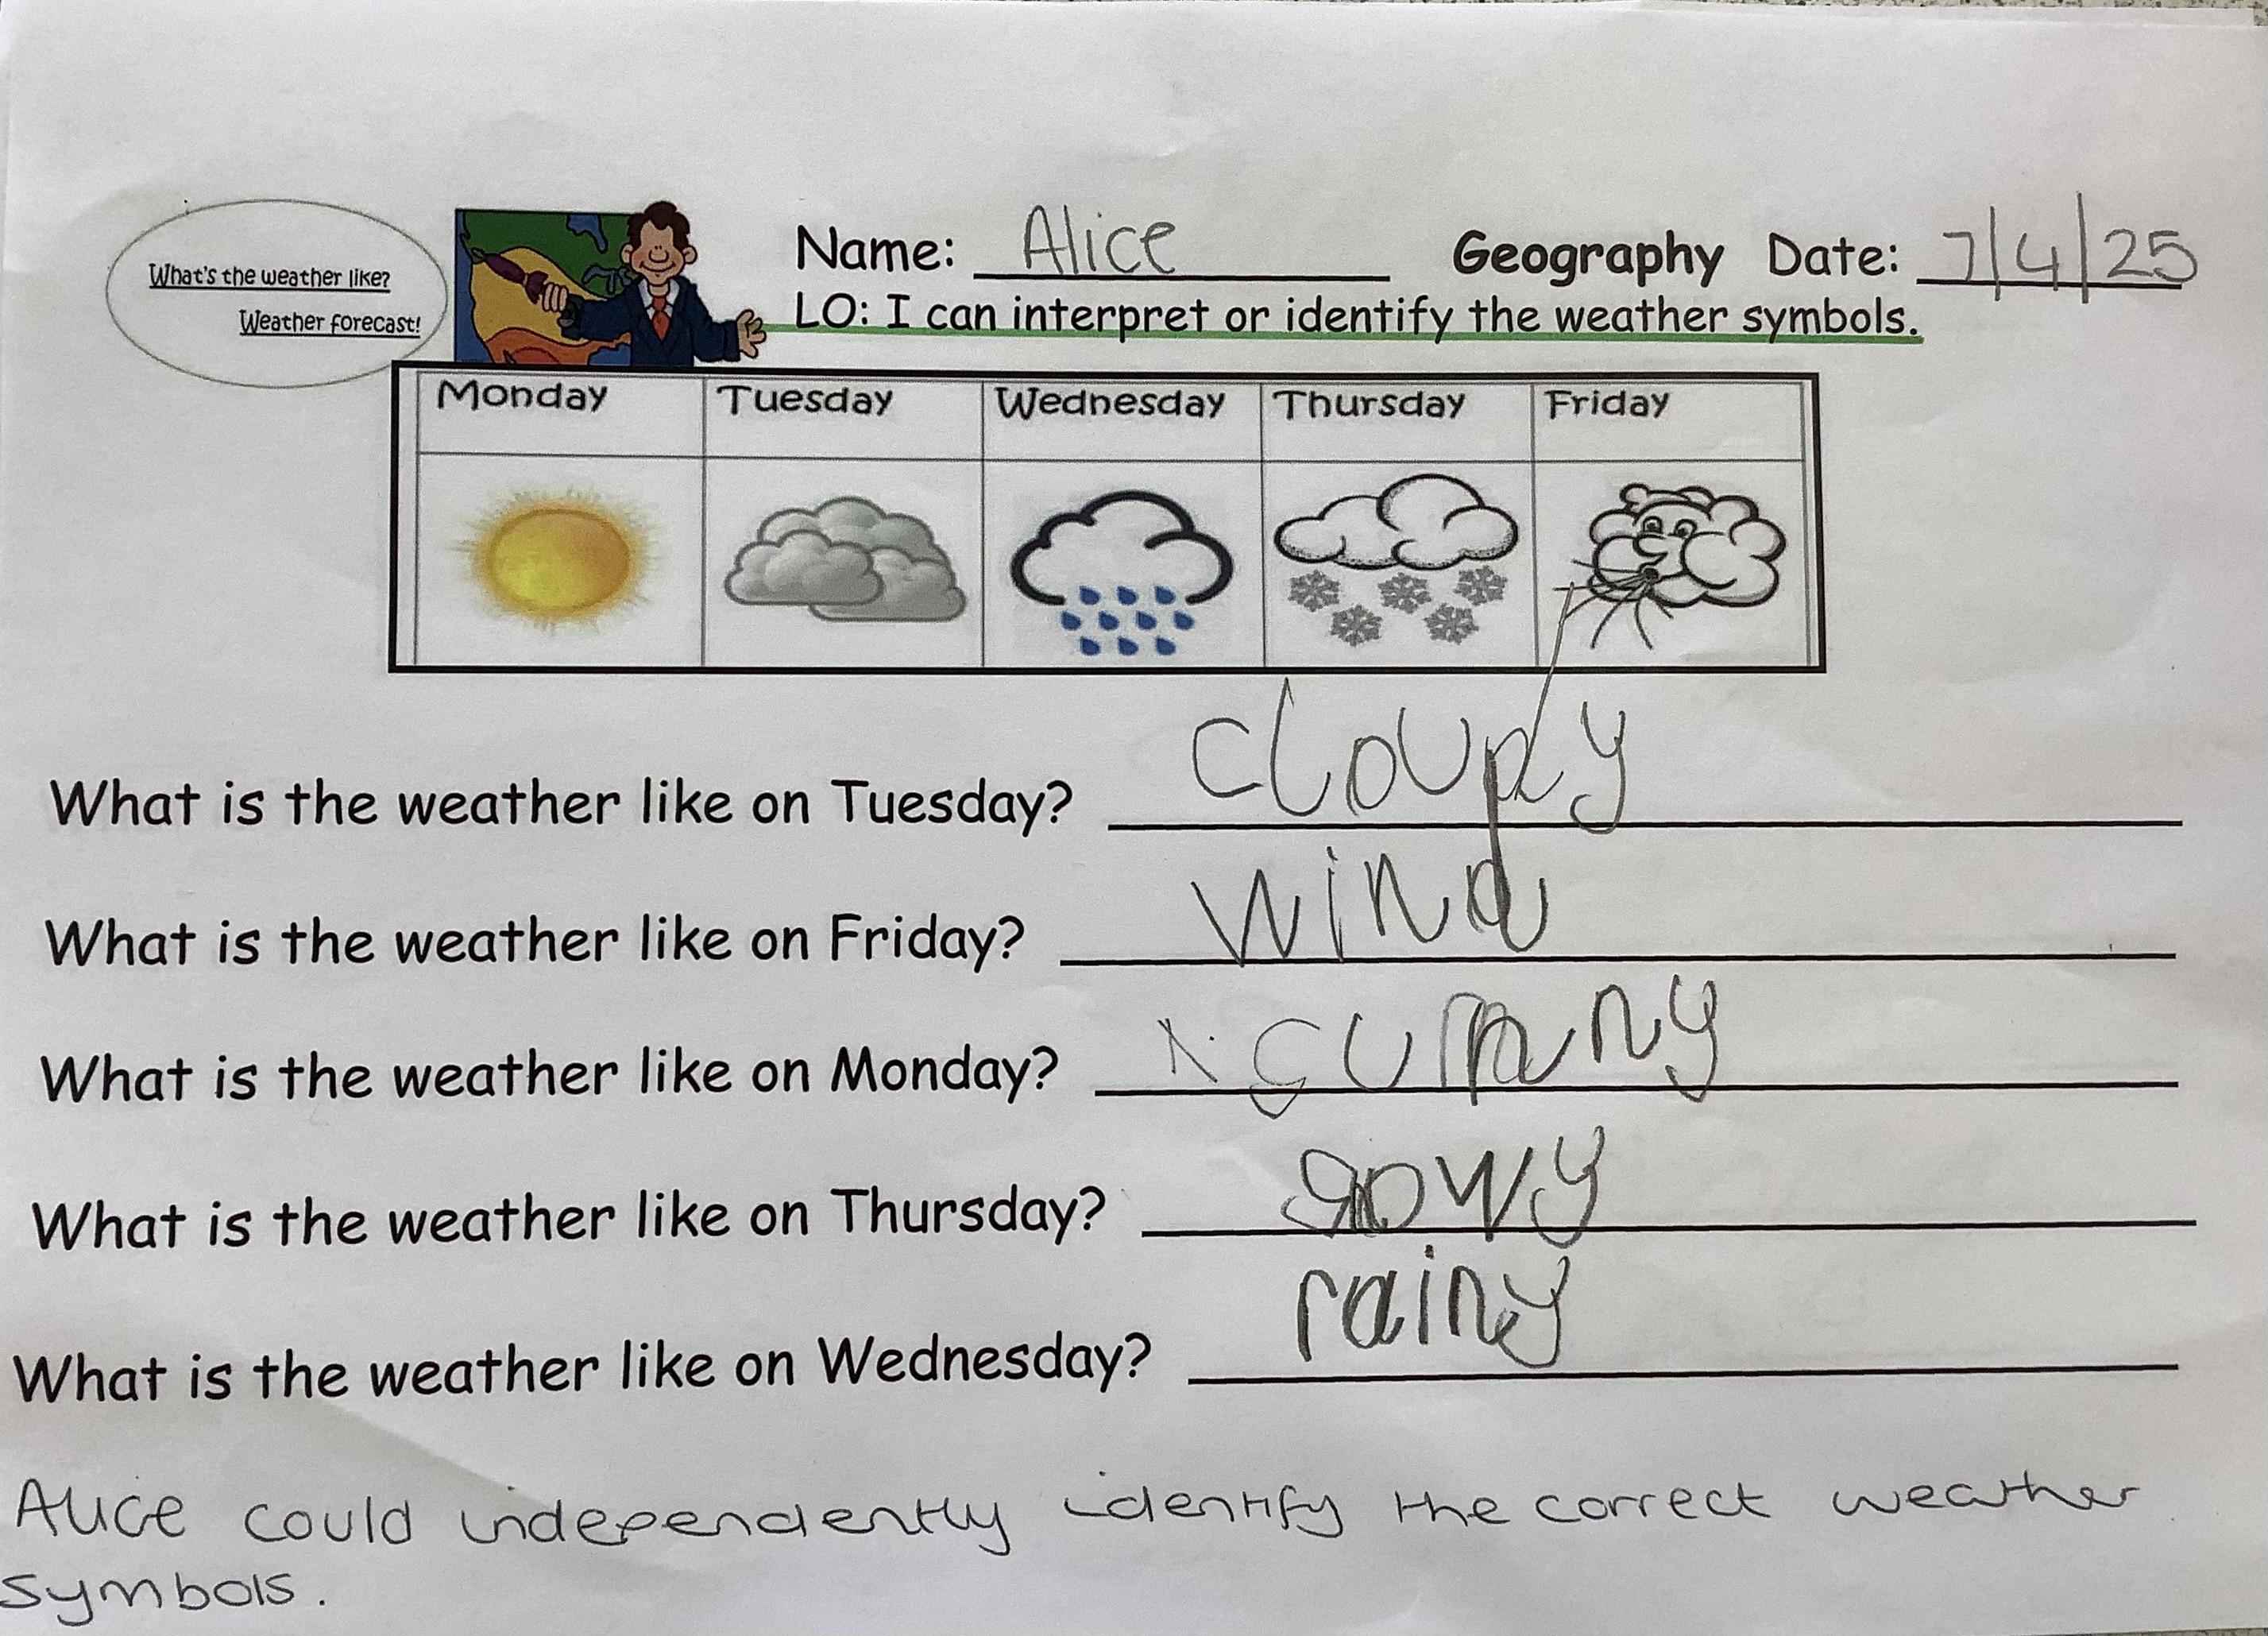 What's the weather like?
Weather forecast!
Name: Alice Geography Date: 7/4/25
LO: I can interpret or identify the weather symbols.
Monday Tuesday Wednesday Thursday Friday
What is the weather like on Tuesday? cloudy
What is the weather like on Friday? wind
What is the weather like on Monday?
What is the weather like on Thursday?
What is the weather like on Wednesday? rainy
Alice could independently identify the correct weather
symbols.